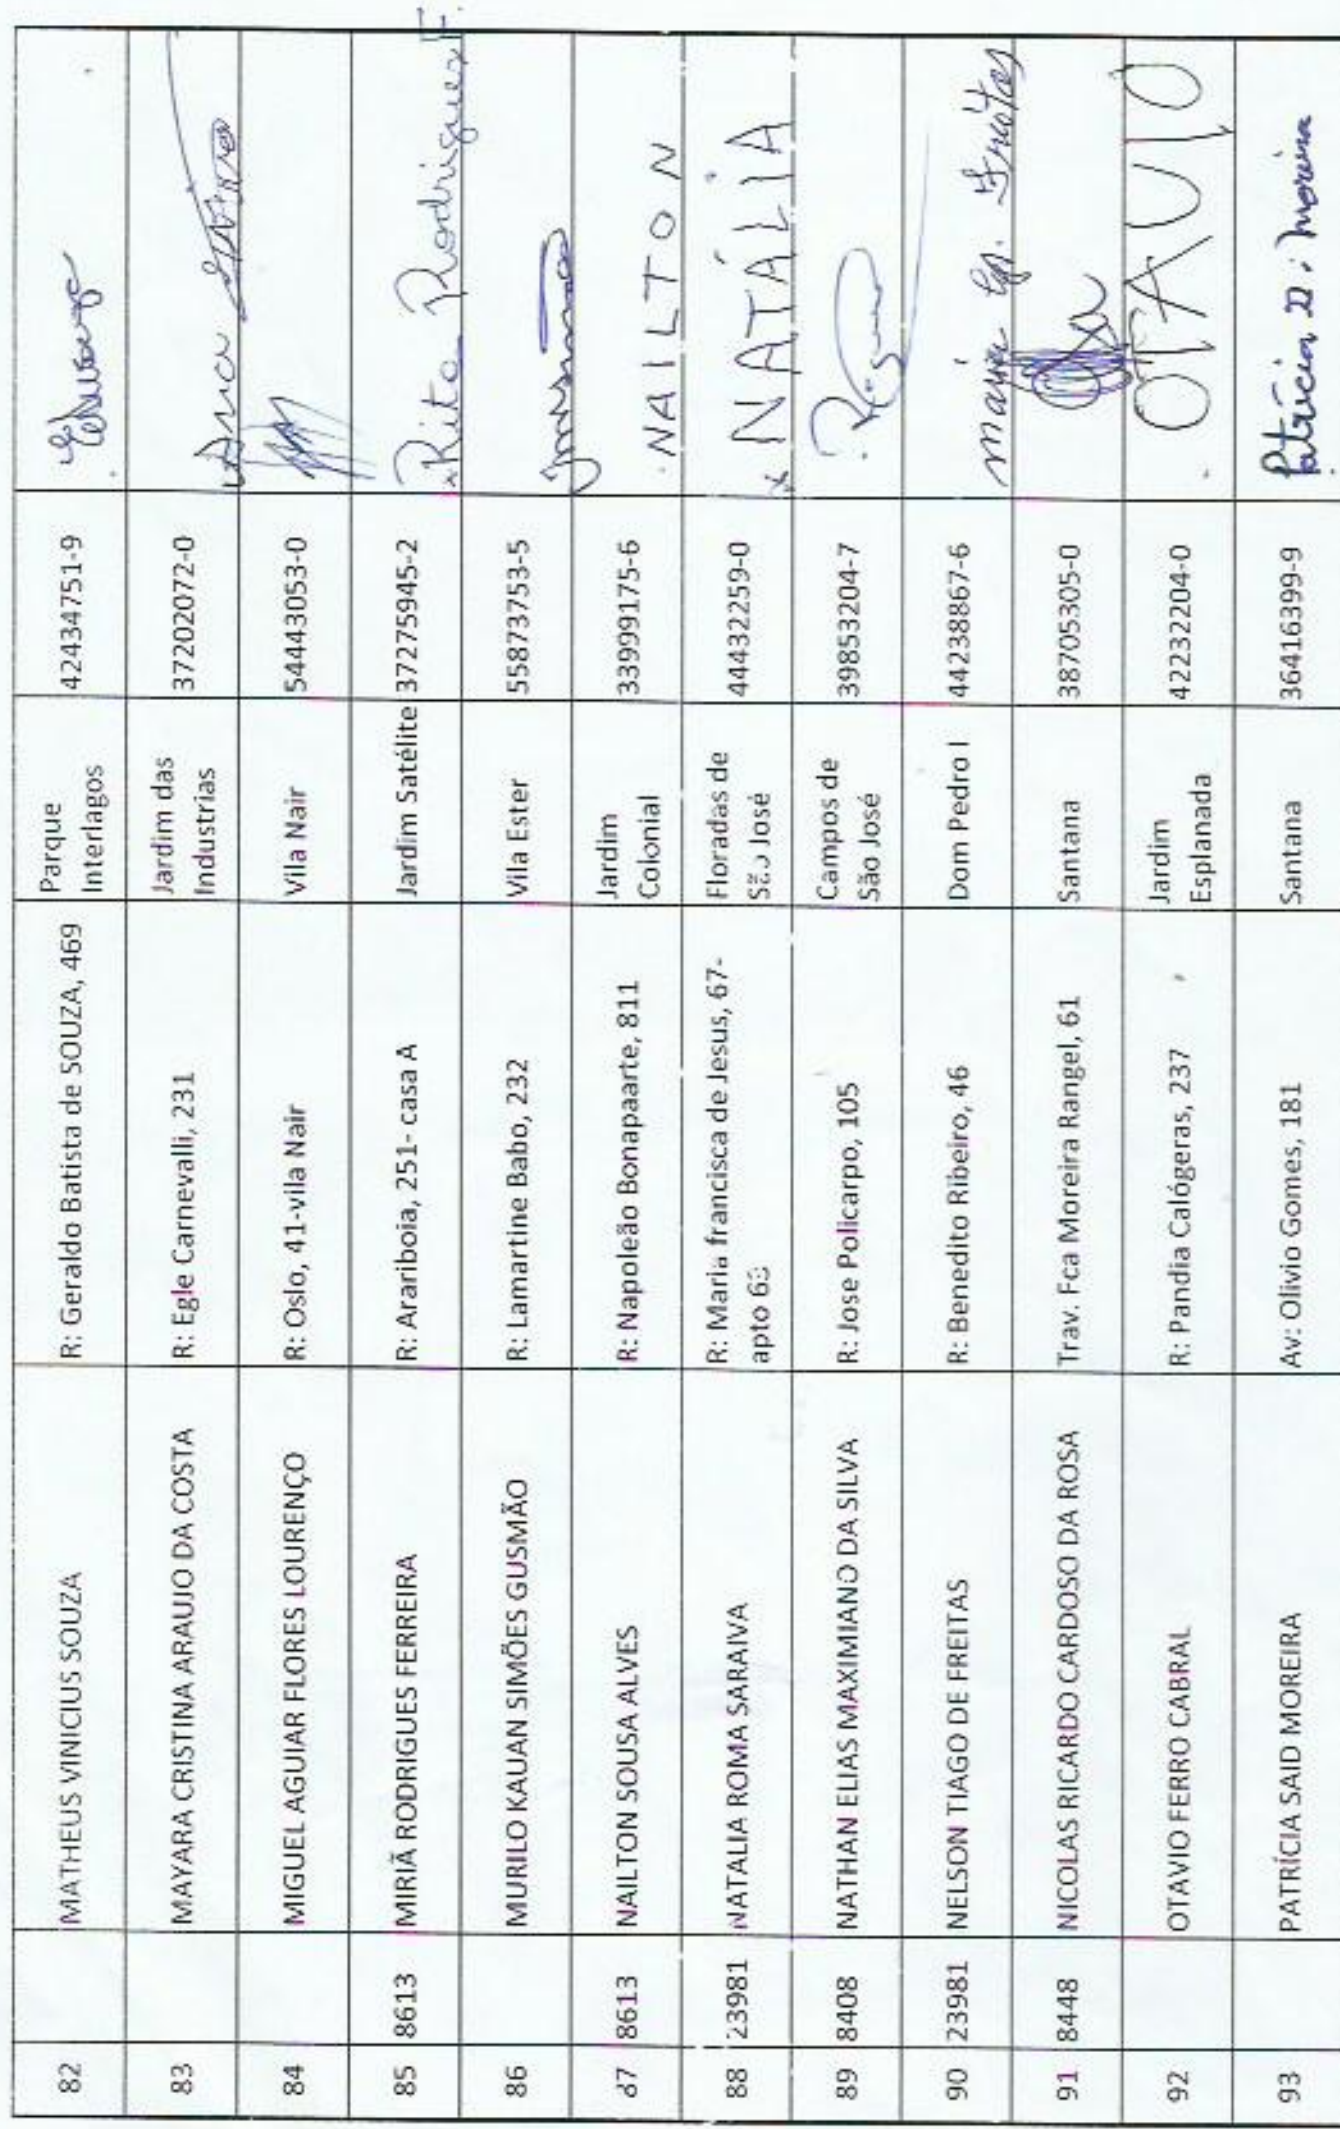 82 MATHEUS VINICIUS SOUZA R: Geraldo Batista de SOUZA, 469 Parque Interlagos 42434751-9
83 MAYARA CRISTINA ARAUJO DA COSTA R: Egle Carnevalli, 231 Jardim das Industrias 37202072-0 Ana
84 MIGUEL AGUIAR FLORES LOURENÇO R: Oslo, 41-vila Nair Vila Nair 54443053-0
85 8613 MIRIÃ RODRIGUES FERREIRA R: Arariboia, 251- casa A Jardim Satélite 37275945-2 Rita Rodrigues F.
86 MURILO KAUAN SIMÕES GUSMÃO R: Lamartine Babo, 232 Vila Ester 55873753-5
87 8613 NAILTON SOUSA ALVES R: Napoleão Bonapaarte, 811 Jardim Colonial 33999175-6 NAILTON
88 23981 NATALIA ROMA SARAIVA R: Maria francisca de Jesus, 67-
apto 63 Floradas de São José 44432259-0 x NATÁLIA
89 8408 NATHAN ELIAS MAXIMIANO DA SILVA R: Jose Policarpo, 105 Campos de São José 39853204-7
90 23981 NELSON TIAGO DE FREITAS R: Benedito Ribeiro, 46 Dom Pedro I 44238867-6 maria Ap. Freitas
91 8448 NICOLAS RICARDO CARDOSO DA ROSA Trav. Fca Moreira Rangel, 61 Santana 38705305-0
92 OTAVIO FERRO CABRAL R: Pandia Calógeras, 237 Jardim Esplanada 42232204-0 OTAVIO
93 PATRÍCIA SAID MOREIRA Av: Olivio Gomes, 181 Santana 36416399-9 Patrícia